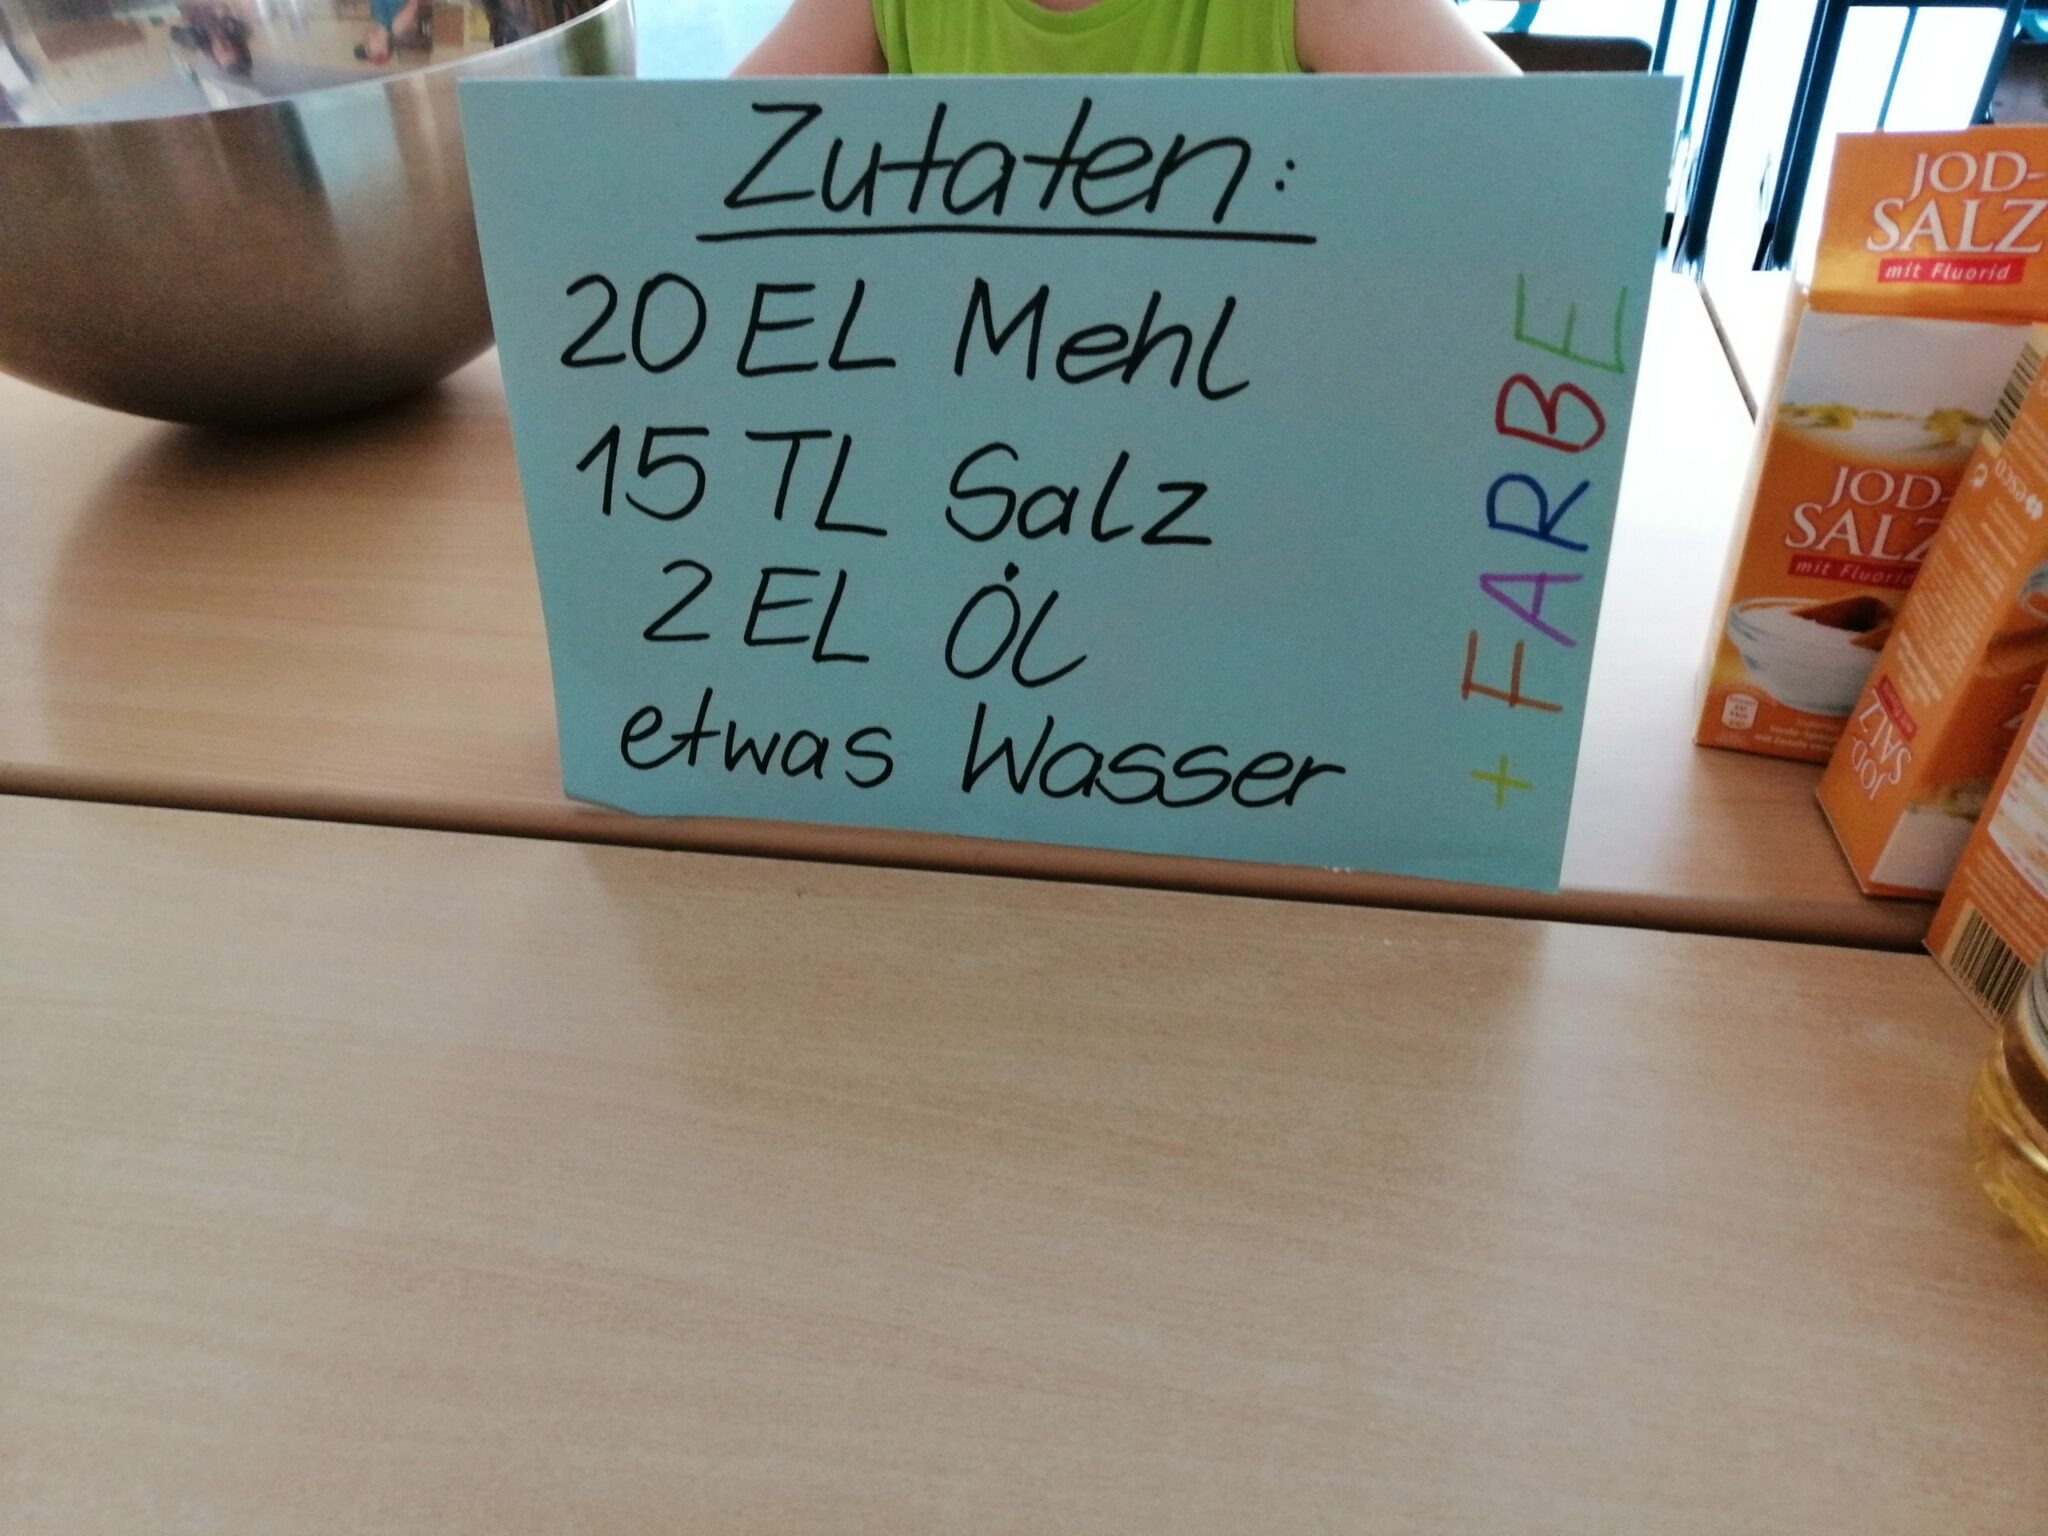 Zutaten:
20 EL Mehl
15 TL Salz
2 EL Öl
etwas Wasser
+ FARBE
JOD-
SALZ
mit Fluorid
JOD-
SALZ
mit Fluorid
JOD
SALZ